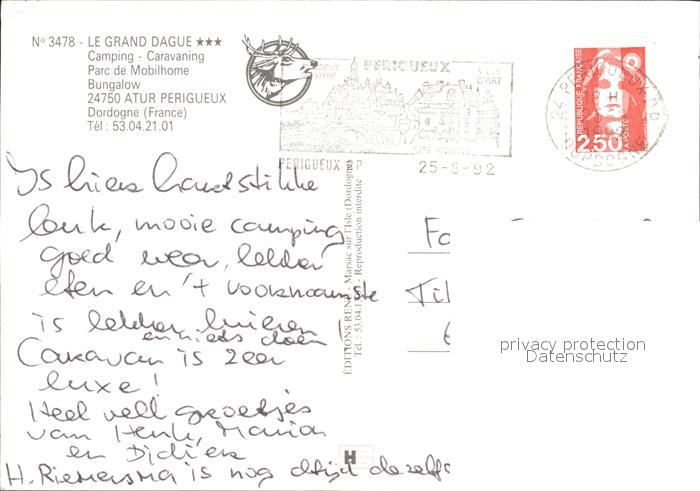 Nº 3478 - LE GRAND DAGUE ★★★
Camping - Caravaning
Parc de Mobilhome
Bungalow
24750 ATUR PERIGUEUX
Dordogne (France)
Tél : 53.04.21.01
PERIGUEUX
VILLE
D'ART
PERIGUEUX R P
25-8-92
REPUBLIQUE FRANÇAISE
2,50
LA POSTE
DORDOGNE
ÉDITIONS RENÉ - Marsac sur l'Isle (Dordogne)
Reproduction interdite
Is hier hartstikke
leuk, mooie camping
goed weer, lekker
eten en 't voornaamste
is lekker luieren
en niets doen!
Caravan is zeer
luxe!
Heel veel groetjes
van Henk, Marion
en
H. Riemersma is nog altijd dezelfd
Fa
Til
6
H
privacy protection
Datenschutz